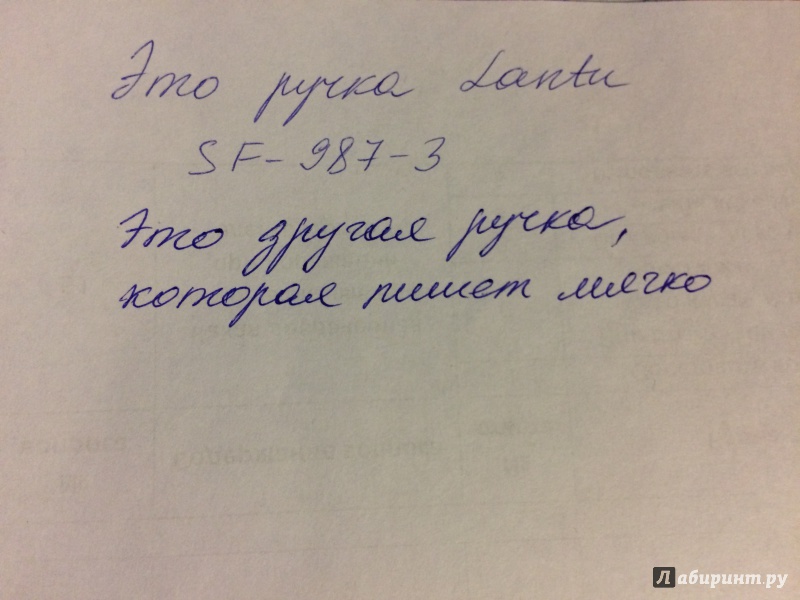 Это ручка Lantu
SF-987-3
Это другая ручка,
которая пишет мягко
Лабиринт.ру